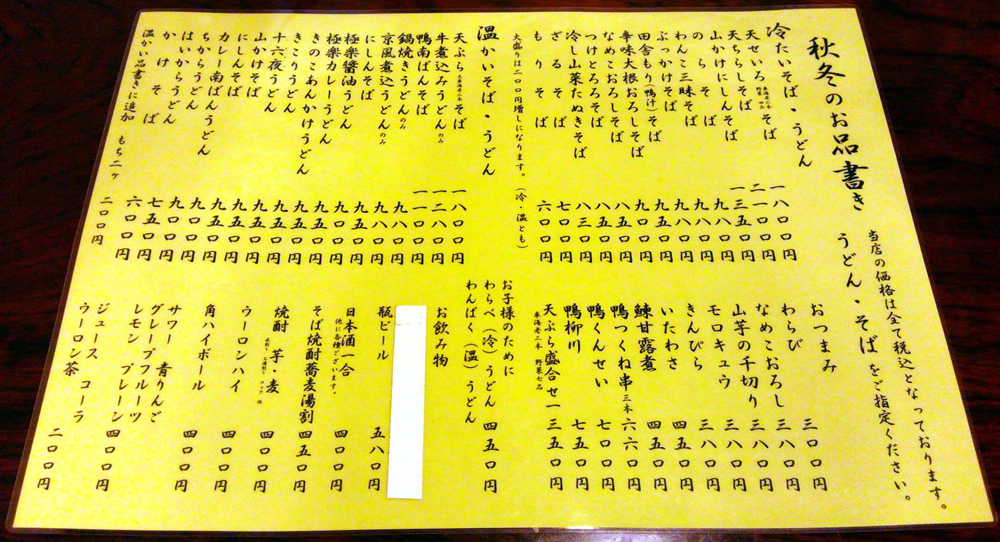 秋冬のお品書き　うどん・そばをご指定ください。
当店の価格は全て税込となっております。
冷たいそば・うどん
天せいろそば 一八〇〇円
天ちらしそば 二一〇〇円
山かけにしんそば 一三五〇円
のらそば 九八〇円
わんこ三昧そば 九八〇円
ぶっかけそば 九八〇円
田舎もり(鴨汁)そば 九五〇円
辛味大根おろしそば 九〇〇円
なめこおろしそば 八五〇円
つけとろろそば 八五〇円
冷し山菜たぬきそば 八三〇円
ざるそば 七〇〇円
もりそば 六〇〇円
大盛りは二〇〇円増しになります。(冷・温とも)
温かいそば・うどん
天ぷらそば 一八〇〇円
牛煮込みうどんのみ 一二八〇円
鴨南ばんそば 一一〇〇円
鍋焼きうどんのみ
京風煮込うどんのみ
にしんそば
極楽醤油うどん
極楽カレーうどん
きのこあんかけうどん
きこりうどん
十六夜うどん
山かけそば
にしんそば
カレー南ばんうどん
ちからうどん
はいからうどん 七五〇円
かけそば 六〇〇円
温かい品書きに追加　もち二ヶ 二〇〇円
おつまみ
わらび 三〇〇円
なめこおろし 三八〇円
山芋の千切り 三八〇円
モロキュウ 三八〇円
きんぴら 三八〇円
いたわさ 四五〇円
鰊甘露煮 四五〇円
鴨つくね串三本 六六〇円
鴨くんせい 七〇〇円
鴨柳川 七五〇円
天ぷら盛合せ 一三五〇円
東海老二本　野菜七品
お子様のために
わらべ(冷)うどん
わんぱく(温)うどん 四五〇円
お飲み物
瓶ビール 五八〇円
日本酒一合 四〇〇円
他に各種ございます。
そば焼酎蕎麦湯割 四五〇円
焼酎　芋・麦 四〇〇円
ウーロンハイ 四〇〇円
角ハイボール 四〇〇円
サワー　青りんご
グレープフルーツ
レモン　プレーン 四〇〇円
ジュース　コーラ
ウーロン茶 二〇〇円